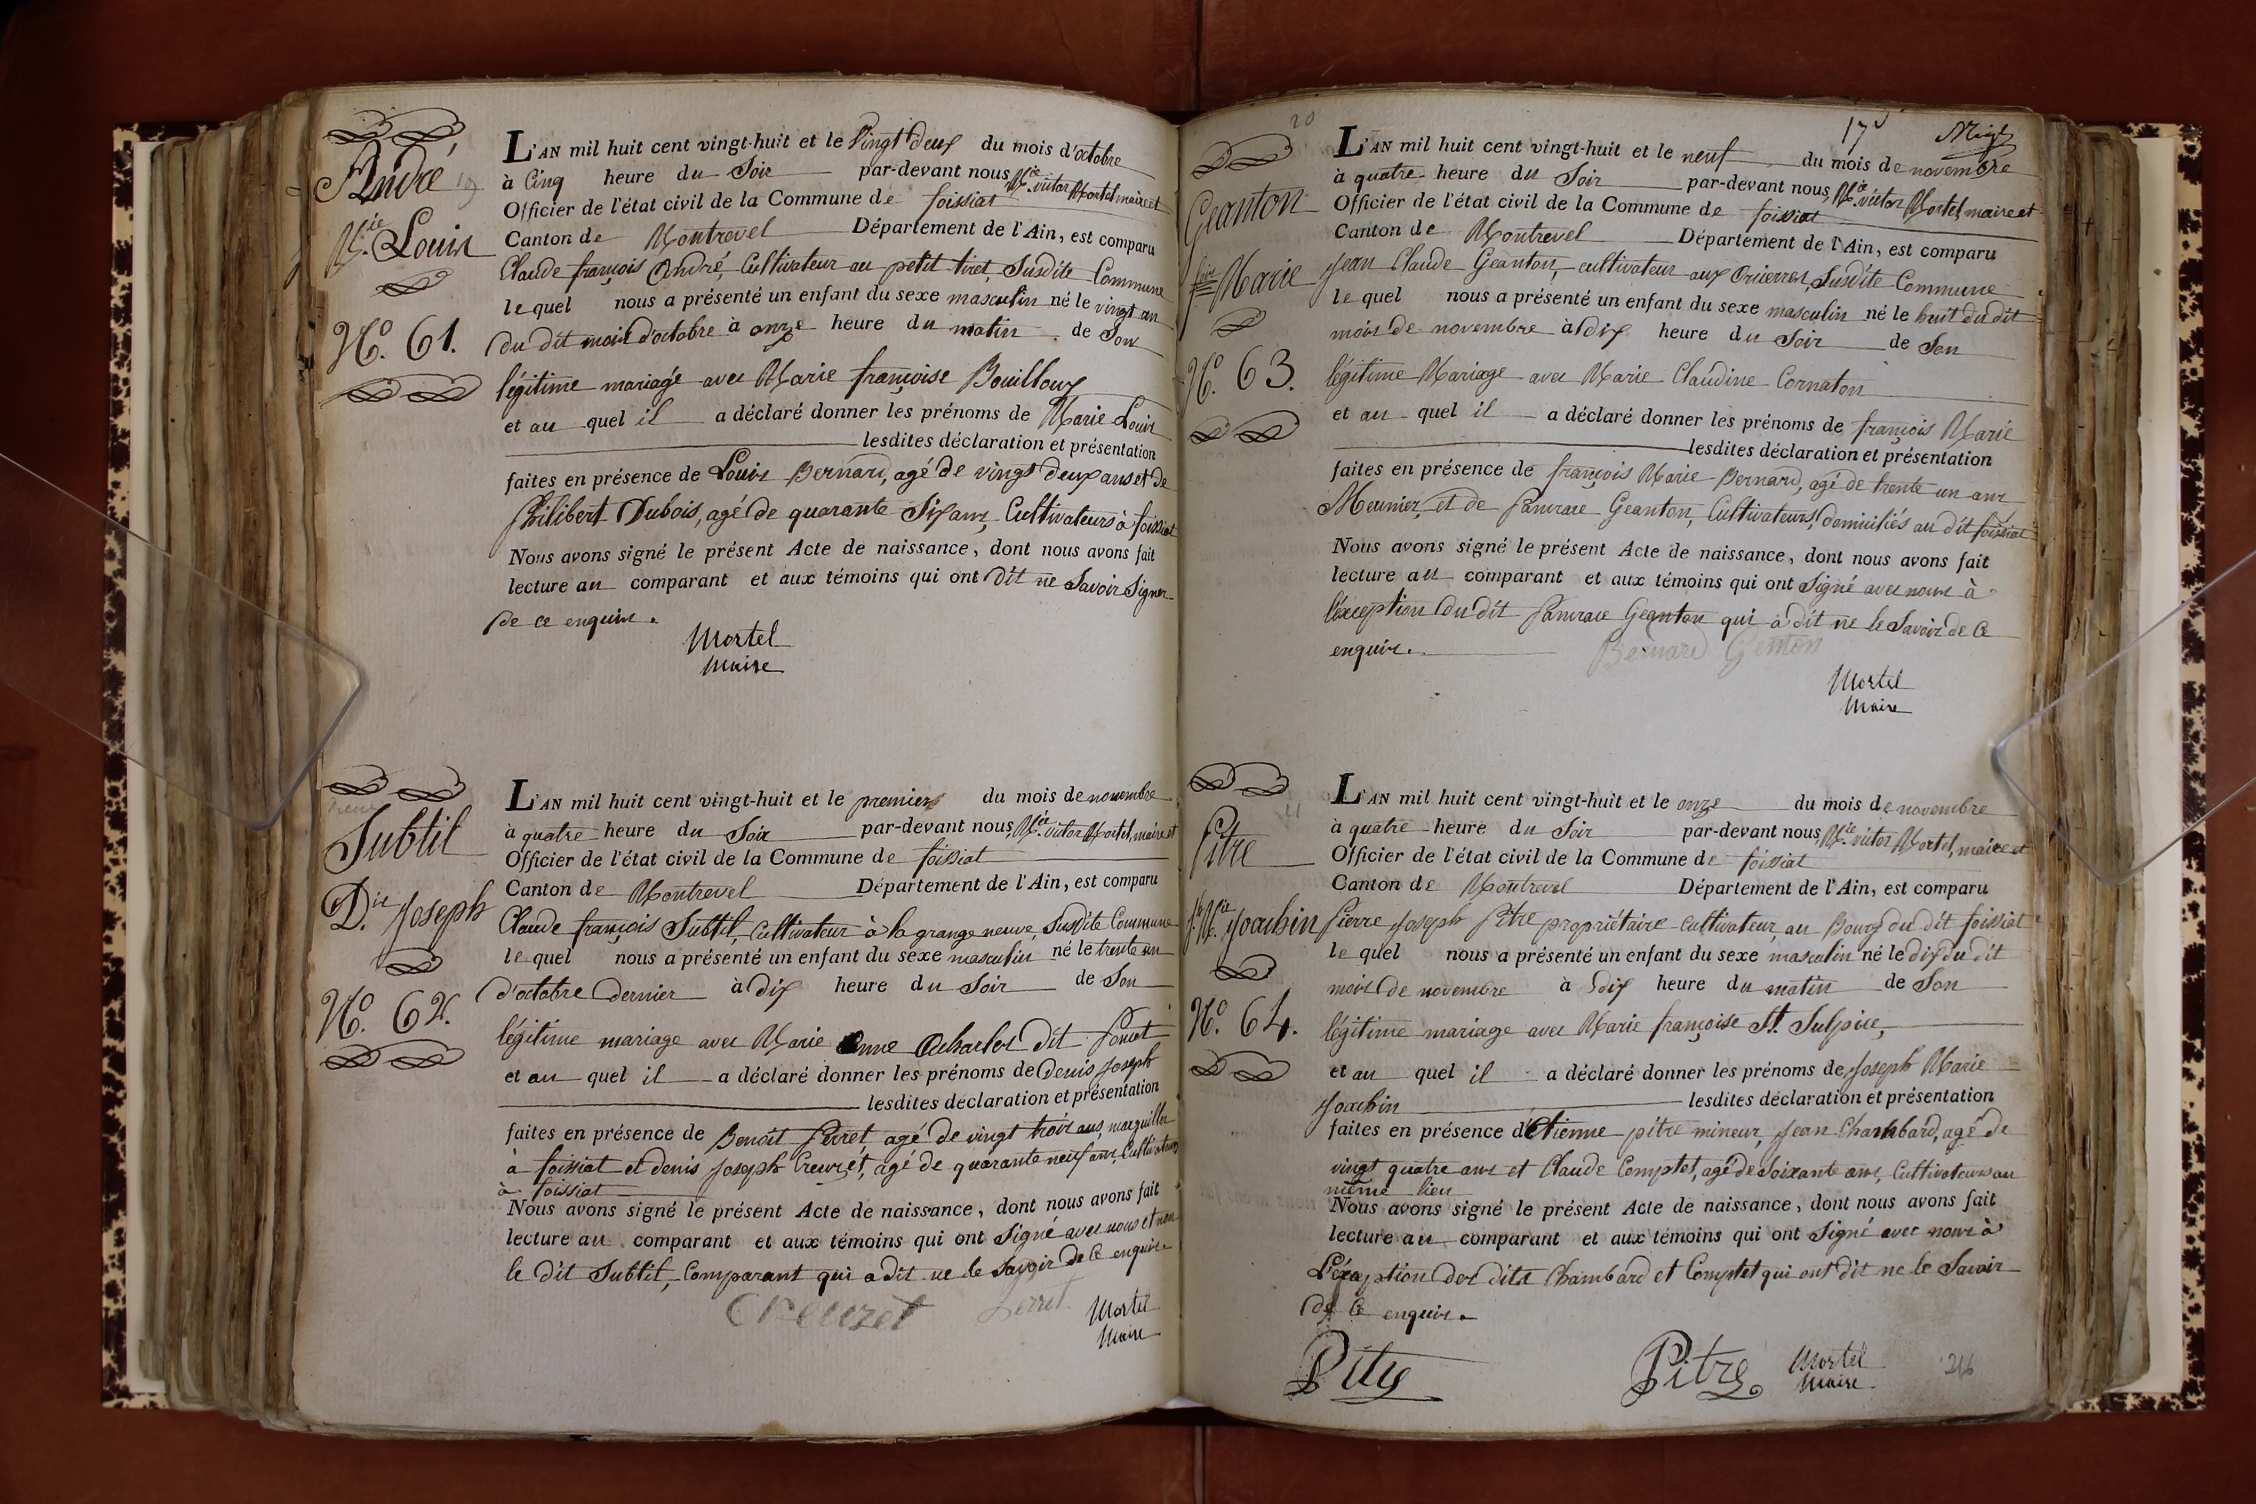 André
M.ie Louis
N.o 61.
L'AN mil huit cent vingt-huit et le Vingt deux du mois d'octobre
à Cinq heure du Soir par-devant nous, M.ie victor Mortel, maire et
Officier de l'état civil de la Commune de foissiat
Canton de Montrevel Département de l'Ain, est comparu
Claude françois André, Cultivateur au petit tiret, Susdite Commune
lequel nous a présenté un enfant du sexe masculin né le vingt un
du dit mois d'octobre à onze heure du matin de Son
légitime mariage avec Marie françoise Bouilloux
et au quel il a déclaré donner les prénoms de Marie Louis
lesdites déclaration et présentation
faites en présence de Louis Bernard, agé de vingt deux ans et de
Philibert Dubois, agé de quarante Six ans, Cultivateurs à foissiat
Nous avons signé le présent Acte de naissance, dont nous avons fait
lecture au comparant et aux témoins qui ont dit ne Savoir Signer
de ce enquis.
Mortel
Maire
Subtil
D.is Joseph
N.o 62.
L'AN mil huit cent vingt-huit et le premier du mois de novembre
à quatre heure du Soir par-devant nous, M.ie victor Mortel, maire et
Officier de l'état civil de la Commune de foissiat
Canton de Montrevel Département de l'Ain, est comparu
Claude françois Subtil, Cultivateur à la grange neuve, Susdite Commune
lequel nous a présenté un enfant du sexe masculin né le trente un
d'octobre dernier à dix heure du Soir de Son
légitime mariage avec Marie Anne dit Poncet
et au quel il a déclaré donner les prénoms de Denis Joseph
lesdites déclaration et présentation
faites en présence de Benoît Perret, agé de vingt trois ans, marguillier
à foissiat et denis Joseph Creuzet, agé de quarante neuf ans, Cultivateur
à foissiat
Nous avons signé le présent Acte de naissance, dont nous avons fait
lecture au comparant et aux témoins qui ont Signé avec nous et non
le dit Subtil, Comparant qui a dit ne le Savoir de Ce enquis.
Creuzet Perret Mortel
Maire
20
17
Geanton
f.ois Marie
N.o 63.
L'AN mil huit cent vingt-huit et le neuf du mois de novembre
à quatre heure du Soir par-devant nous, M.ie victor Mortel, maire et
Officier de l'état civil de la Commune de foissiat
Canton de Montrevel Département de l'Ain, est comparu
Jean Claude Geanton, cultivateur aux Susdite Commune
lequel nous a présenté un enfant du sexe masculin né le huit du dit
mois de novembre à dix heure du Soir de Son
légitime Mariage avec Marie Claudine Cornaton
et au quel il a déclaré donner les prénoms de françois Marie
lesdites déclaration et présentation
faites en présence de françois Marie Bernard, agé de trente un ans
Meunier, et de Pancrace Geanton, Cultivateurs, domiciliés au dit foissiat
Nous avons signé le présent Acte de naissance, dont nous avons fait
lecture au comparant et aux témoins qui ont Signé avec nous à
l'exception du dit Pancrace Geanton qui a dit ne le Savoir de Ce
enquis.
Bernard Genton
Mortel
Maire
Pitre
J.h M.ie Joachin
N.o 64.
L'AN mil huit cent vingt-huit et le onze du mois de novembre
à quatre heure du Soir par-devant nous, M.ie victor Mortel, maire et
Officier de l'état civil de la Commune de foissiat
Canton de Montrevel Département de l'Ain, est comparu
Pierre Joseph Pitre propriétaire cultivateur, au Bourg du dit foissiat
lequel nous a présenté un enfant du sexe masculin né le dix du dit
mois de novembre à dix heure du matin de Son
légitime mariage avec Marie françoise St. Sulpice,
et au quel il a déclaré donner les prénoms de Joseph Marie
Joachin lesdites déclaration et présentation
faites en présence d'Etienne pitre mineur, Jean Chambard, agé de
vingt quatre ans et Claude Comptet, agé de Soixante ans, Cultivateurs au
même lieu
Nous avons signé le présent Acte de naissance, dont nous avons fait
lecture au comparant et aux témoins qui ont Signé avec nous à
L'éxception des dits Chambard et Comptet qui ont dit ne le Savoir
de Ce enquis.
Pitre Pitre Mortel
Maire
216